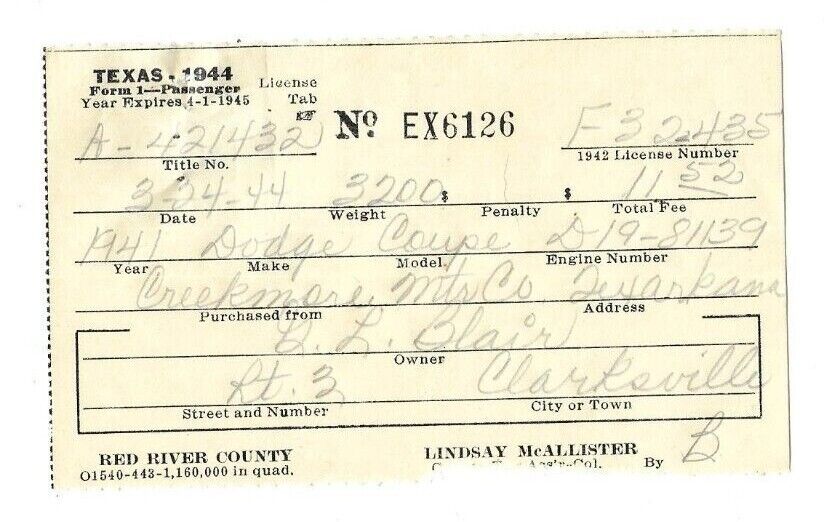 TEXAS - 1944
Form 1—Passenger License
Year Expires 4-1-1945 Tab
No EX6126
A-421432 F32435
Title No. 1942 License Number
3-24-44 3200 $ $ 11 52
Date Weight Penalty Total Fee
1941 Dodge Coupe D19-81139
Year Make Model Engine Number
Creekmore Mtr Co Texarkana
Purchased from Address
L. Blair
Owner
Rt. 3 Clarksville
Street and Number City or Town
RED RIVER COUNTY LINDSAY McALLISTER
O1540-443-1,160,000 in quad. Ass'r-Col. By B